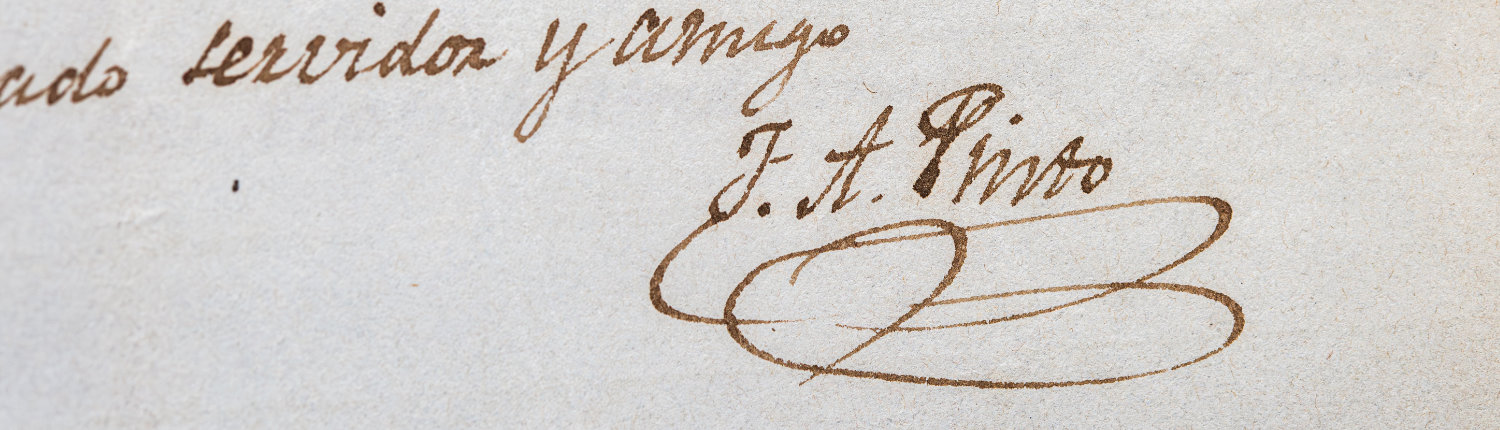 ado servidor y amigo
F. A. Pinto